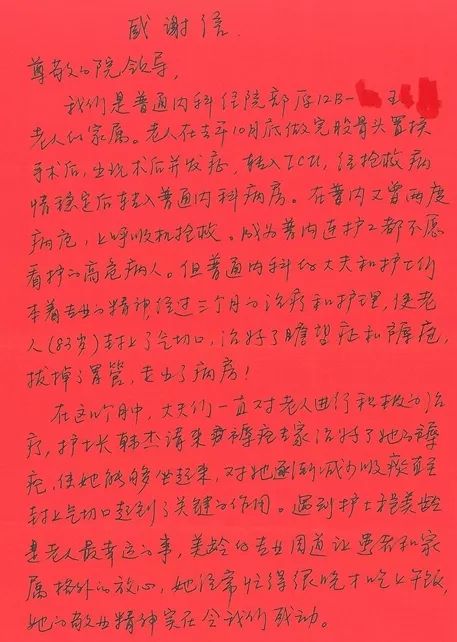 感谢信
尊敬的院领导，
我们是普通内科住院部原12B- 王
老人的家属。老人在去年10月底做完股骨头置换
手术后，出现术后并发症，转入ICU，经抢救病
情稳定后转入普通内科病房。在普内又曾两度
病危，上呼吸机抢救。成为普内连护工都不愿
看护的高危病人。但普通内科的大夫和护士们
本着专业的精神经过三个月的治疗和护理，使老
人(83岁)封上了气切口，治好了瞻望症和褥疮，
拔掉了胃管，走出了病房！
在这个月中，大夫们一直对老人进行积极的治
疗，护士长韩杰请来褥疮专家治好了她的褥
疮，使她能够坐起来，对她逐渐减少吸痰直至
封上气切口起到了关键的作用。遇到护士穆美龄
是老人最幸运的事，美龄的专业周道让患者和家
属格外的放心，她经常忙得很晚才吃上午饭，
她的敬业精神实在令我们感动。